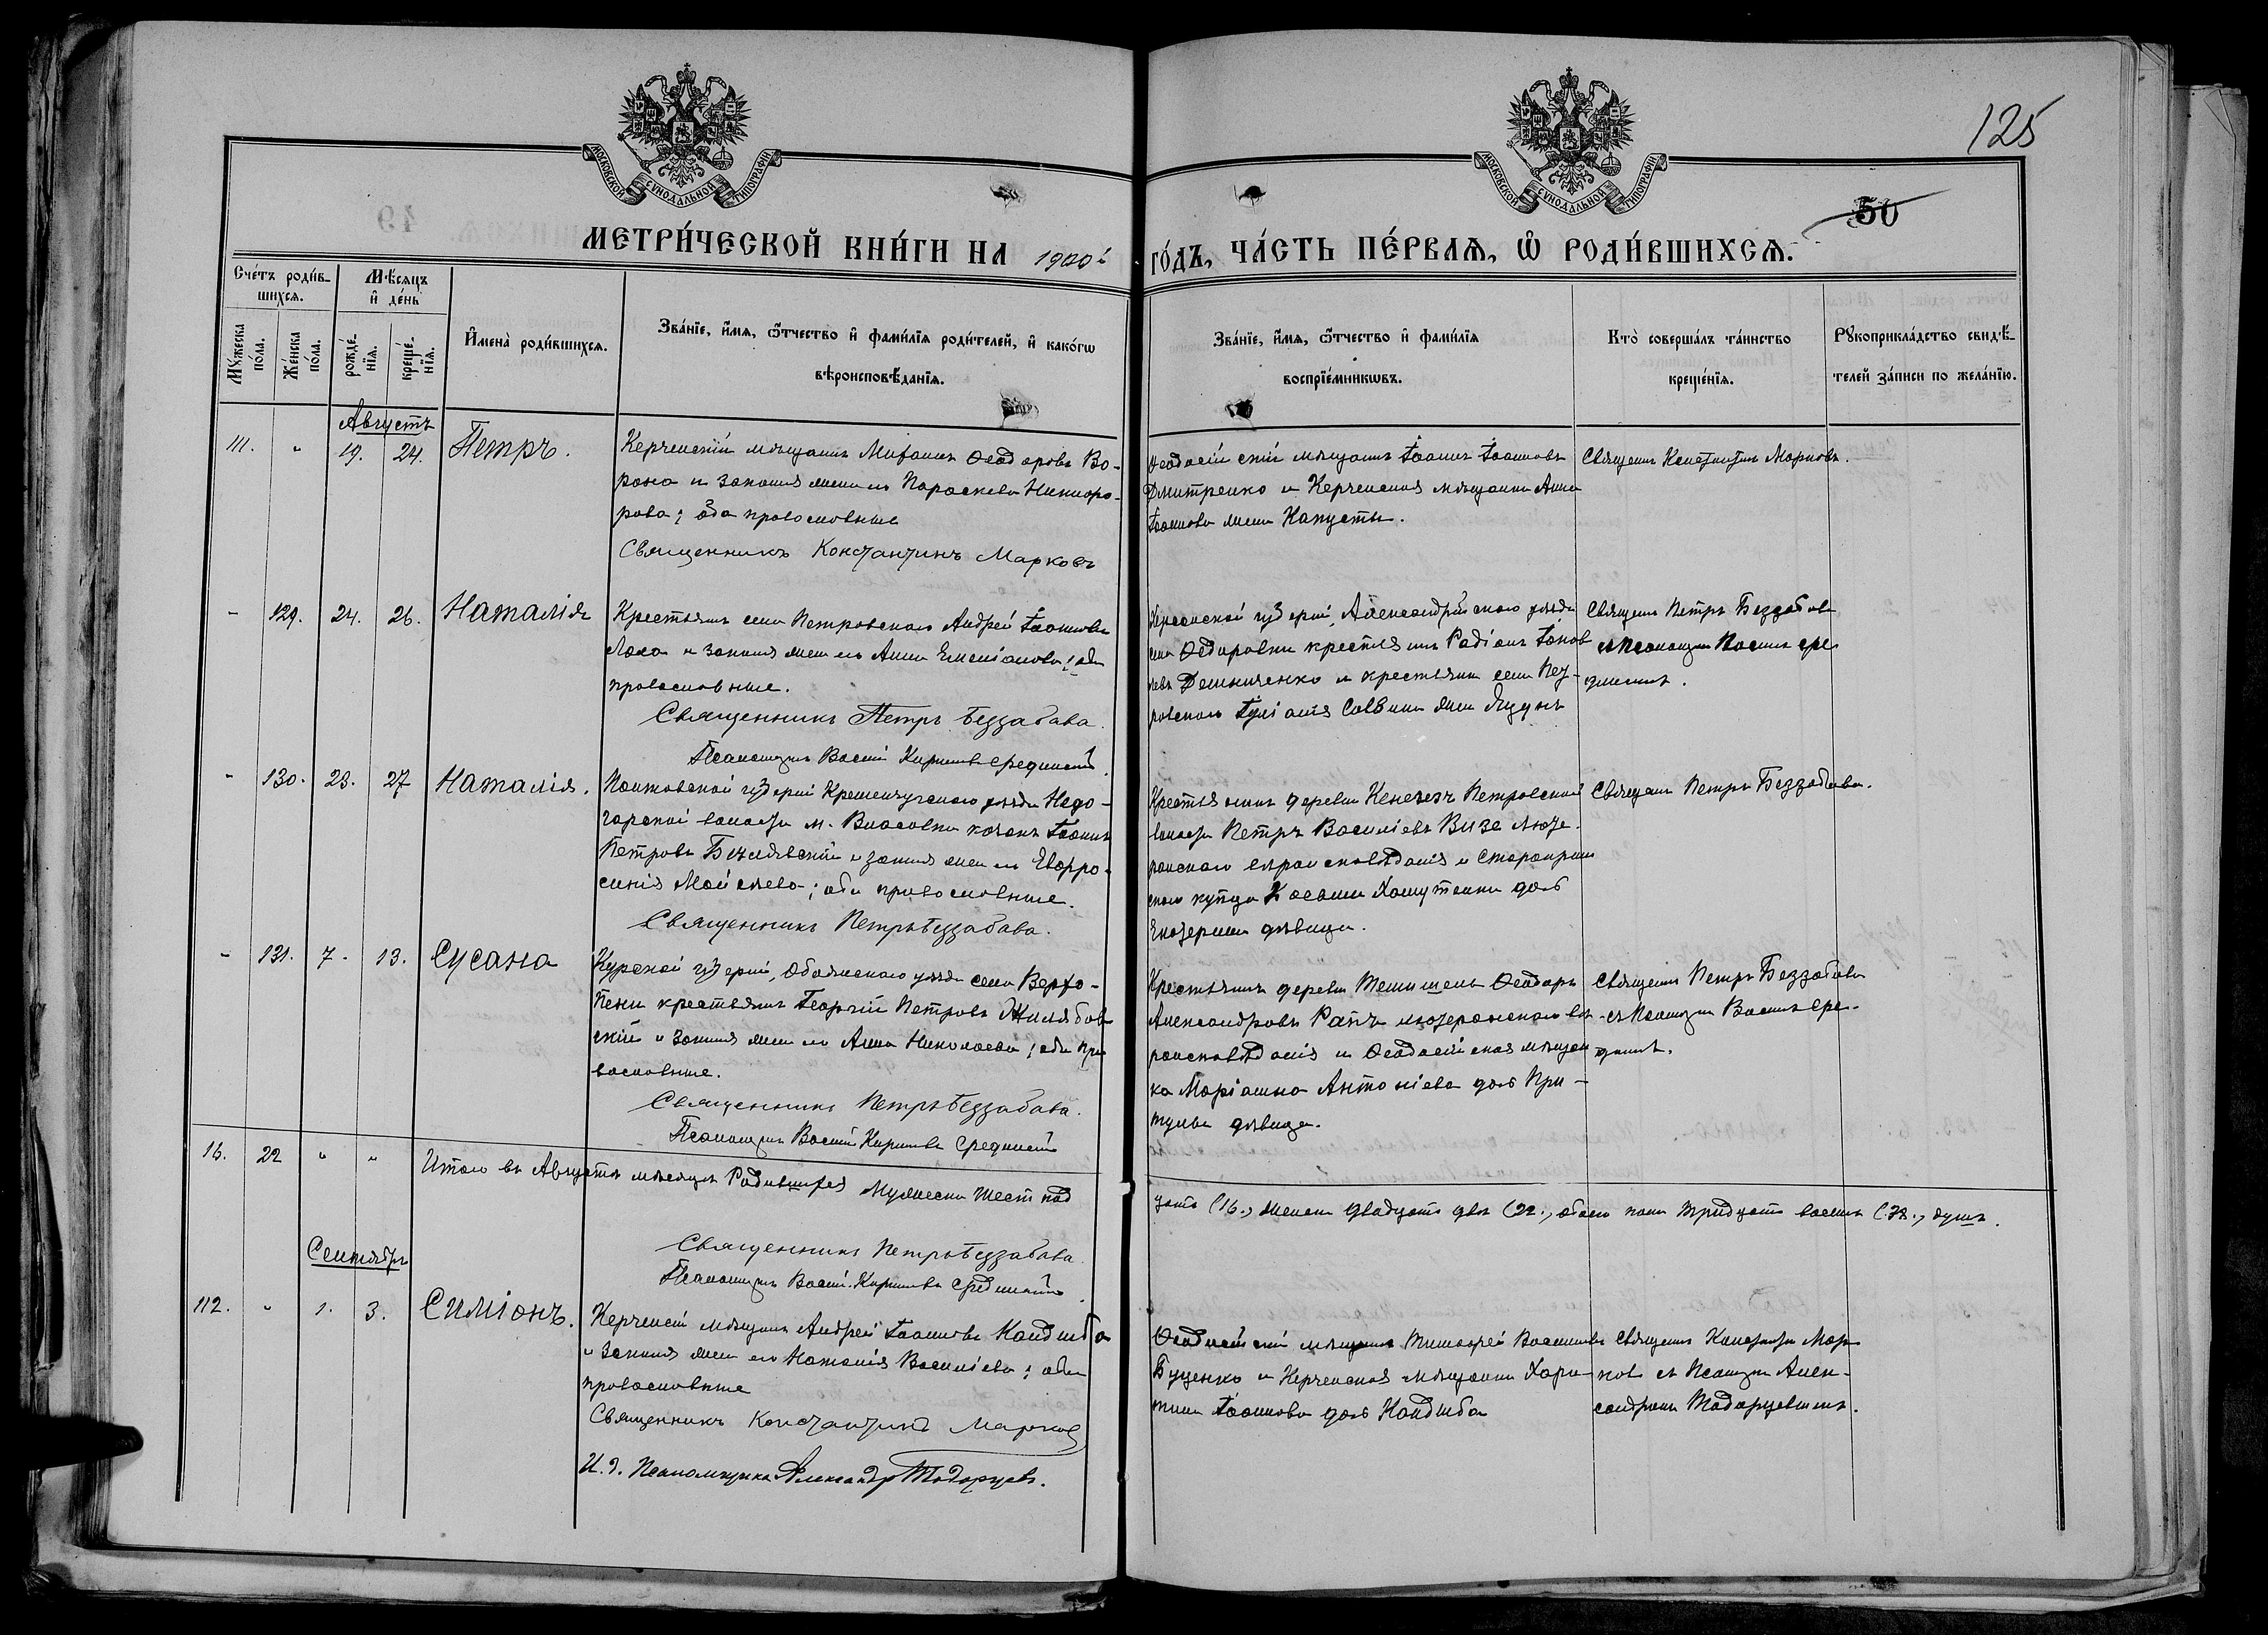 125
50
МОСКОВСКОЙ СѴНОДАЛЬНОЙ ТИПОГРАФІИ
МОСКОВСКОЙ СѴНОДАЛЬНОЙ ТИПОГРАФІИ
МЕТРИ́ЧЕСКОЙ КНИ́ГИ НА 1900й ГО́ДЪ, ЧА́СТЬ ПЕ́РВАЯ, Ѡ РОДИ́ВШИХСЯ.
Сче́тъ роди́в-
шихся.
Мѣсяцъ
и҆ де́нь
Мꙋ́жеска
по́ла.
Же́нска
по́ла.
рожде́-
нїя.
креще́-
нїя.
И҆мена̀ роди́вшихся.
Зва́нїе, и҆́мя, ѻ҆́тчество и҆ фами́лїя роди́телей, и҆ како́гѡ
вѣроисповѣ́данїя.
Зва́нїе, и҆́мя, ѻ҆́тчество и҆ фами́лїя
воспрїе́мникѡвъ.
Кто̀ соверша́лъ та́инство
креще́нїя.
Рꙋкоприкла́дство свидѣ́-
телей за́писи по жела́нїю.
Августъ
111. " 19. 24. Петръ.
Керченскій мѣщанинъ Ѳеодоровъ Во-
рона и законная жена его Параскева
оба православные
Священникъ Константинъ Марковъ
Ѳеодосійскій мѣщанинъ Іоаннъ Іоанновъ
Дмитренко и Керченская мѣщанка Анна
Іоаннова жена Капусты.
Священ. Константинъ Марковъ.
- 129. 24. 26. Наталія
Крестьян. села Петровскаго Андрей Іоанновъ
и законная жена его Анна Емеліанова; оба
православные.
Священникъ Петръ Беззабава.
Псаломщикъ Васил. Кириловъ Срединскій.
Херсонской губерніи, Александрійскаго уѣзда
села Ѳедоровки крестьянинъ Радіонъ
и крестьянки села Пет-
ровскаго Іуліанія Саввина жена
Священ. Петръ Беззабава
съ Псаломщи. Васил. Сре-
динским.
- 130. 23. 27 Наталія.
Полтавской губерніи Кременчугскаго уѣзда Недо-
гарской волости м. Власовки козакъ Іоаннъ
Петровъ и законная жена его Евфро-
синія Моисеева; оба православные.
Священникъ Петръ Беззабава.
Крестьянинъ деревни Кенегезъ Петровской
волости Петръ Василіевъ Визе люте-
ранскаго вѣроисповѣданія и Старокрым-
скаго купца дочь
Екатерина дѣвица.
Священ. Петръ Беззабава.
- 131. 7. 13. Сусана
Курской губерніи, Обоянскаго уѣзда села Верхо-
пени крестьянинъ Георгій Петровъ
и законная жена его Анна Николаева; оба пра-
вославные.
Священникъ Петръ Беззабава.
Псаломщикъ Васил. Кириловъ Срединскій
Крестьянинъ деревни Ѳеодоръ
Александровъ Рапъ лютеранскаго вѣ-
роисповѣданія и Ѳеодосійская мѣщан-
ка Маріанна Антоніева дочь При-
тулы дѣвица.
Священ. Петръ Беззабава
съ Псаломщи. Васил. Сре-
динск.
16. 22 " "
Итого въ Августѣ мѣсяцѣ Родившихся Мужеска шестнад-
цать (16., женска двадцать два (22., обоего пола тридцать восемь (38., душъ.
Священникъ Петръ Беззабава
Псаломщикъ Васил. Кириловъ Срединскій.
Сентябрь
112. " 1. 3. Симіонъ.
Керченскій мѣщанинъ Андрей Іоанновъ Кандыба
и законная жена его Наталія Василіева; оба
православные
Священникъ Константинъ Марков
И. д. Псаломщика Александр Тодорцевъ.
Ѳеодосійскій мѣщанинъ Тимофей
Буценко и Керченская мѣщанка Хари-
тина Іоаннова дочь Кандыба
Священ. Константин Мар-
ков съ Псаломщи. Алек-
сандром Тодорцевымъ.